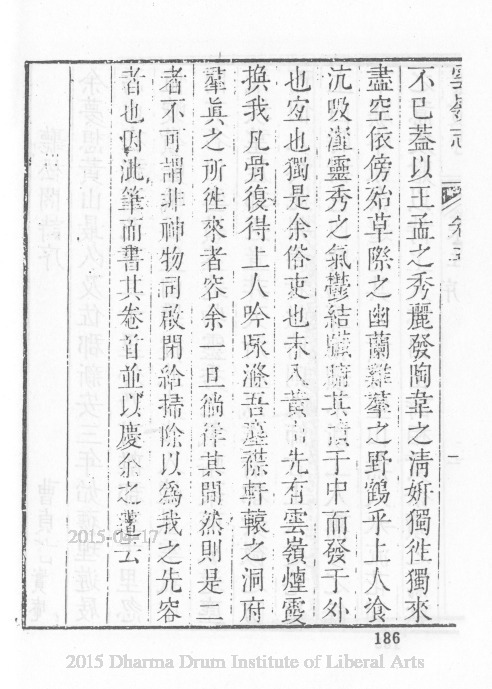 雲嶺志
不已蓋以王孟之秀麗發陶韋之清妍獨徃獨來
盡空依傍殆草際之幽蘭雞羣之野鶴乎上人飡
沆吸瀣靈秀之氣鬱結其漬于中而發于外
也宐也獨是余俗吏也未入黃山先有雲嶺煙霞
換我凡骨復得上人吟咏滌吾塵襟軒轅之洞府
羣眞之所徃來者容余一旦徜徉其間然則是二
者不可謂非神物司啟閉給掃除以爲我之先容
者也因泚筆而書其卷首並以慶余之遭云
186
2015-04-17
2015 Dharma Drum Institute of Liberal Arts